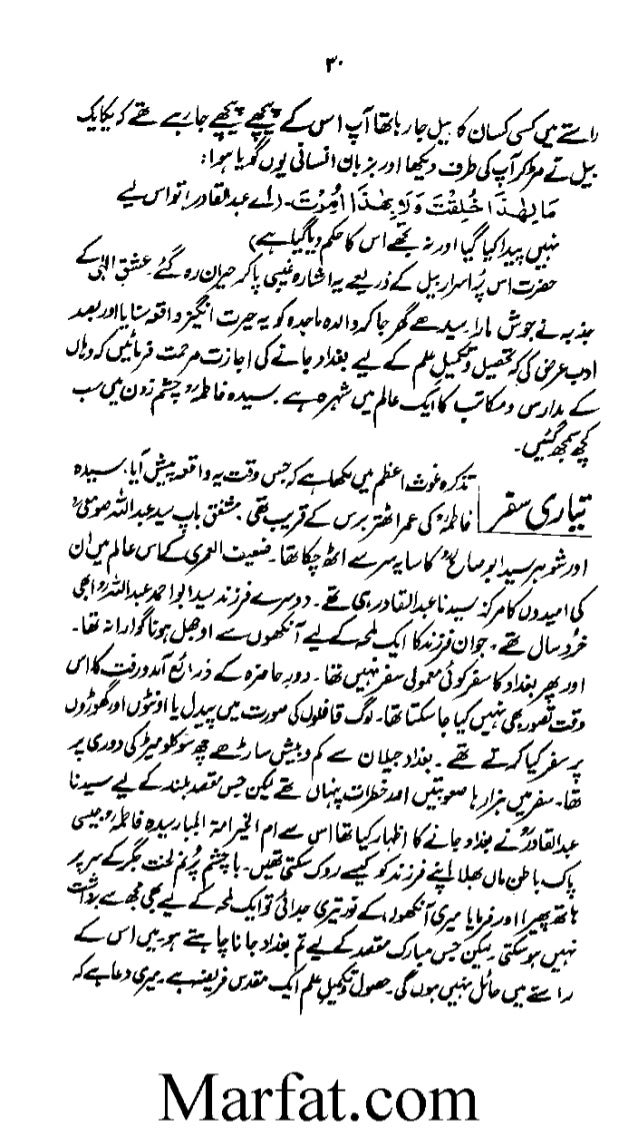 ۳۰
راستے میں کسی کسان کا بیل جا رہا تھا آپ اس کے پیچھے پیچھے جا رہے تھے کہ یکایک
بیل نے مڑ کر آپ کی طرف دیکھا اور بزبان انسانی یوں گویا ہوا:
مَا لِهٰذَا خُلِقْتَ وَلَا بِهٰذَا اُمِرْتَ۔ (اے عبدالقادر! تو اس لیے
نہیں پیدا کیا گیا اور نہ تجھے اس کا حکم دیا گیا ہے)
حضرت اس پُر اسرار بیل کے ذریعے یہ اشارہ غیبی پا کر حیران رہ گئے۔ عشق الٰہی کے
جذبہ نے جوش مارا۔ سیدھے گھر جا کر والدہ ماجدہ کو یہ حیرت انگیز واقعہ سنایا اور بعد
ادب عرض کی کہ تحصیل و تکمیل علم کے لیے بغداد جانے کی اجازت مرحمت فرمائیں کہ وہاں
کے مدارس و مکاتب کا ایک عالم میں شہرہ ہے۔ سیدہ فاطمہؒ چشم زدن میں سب
کچھ سمجھ گئیں۔
تیاری سفر
تذکرہ غوث اعظم میں لکھا ہے کہ جس وقت یہ واقعہ پیش آیا، سیدہ
فاطمہؒ کی عمر اٹھتر برس کے قریب تھی۔ مشفق باپ سید عبداللہ صومعیؒ
اور شوہر سید ابو صالحؒ کا سایہ سر سے اٹھ چکا تھا۔ ضعیف العمری کے اس عالم میں ان
کی امیدوں کا مرکز سیدنا عبدالقادر ہی تھے۔ دوسرے فرزند سید ابو احمد عبداللہؒ ابھی
خُرد سال تھے۔ جوان فرزند کا ایک لمحہ کے لیے آنکھوں سے اوجھل ہونا گوارا نہ تھا۔
اور پھر بغداد کا سفر کوئی معمولی سفر نہیں تھا۔ دورِ حاضرہ کے ذرائع آمد و رفت کا اس
وقت تصور بھی نہیں کیا جا سکتا تھا۔ لوگ قافلوں کی صورت میں پیدل یا اونٹوں اور گھوڑوں
پر سفر کیا کرتے تھے۔ بغداد جیلان سے کم و بیش ساڑھے چھ سو کلومیٹر کی دوری پر
تھا۔ سفر میں ہزار ہا صعوبتیں اور خطرات پنہاں تھے لیکن جس مقصد بلند کے لیے سیدنا
عبدالقادرؒ نے بغداد جانے کا اظہار کیا تھا اس سے ام الخیر امۃ الجبار سیدہ فاطمہؒ جیسی
پاک باطن ماں بھلا اپنے فرزند کو کیسے روک سکتی تھیں۔ با چشم پُرنم لخت جگر کے سر پر
ہاتھ پھیرا اور فرمایا میری آنکھوں کے نور تیری جدائی تو ایک لمحہ کے لیے بھی مجھ سے برداشت
نہیں ہو سکتی۔ لیکن جس مبارک مقصد کے لیے تم بغداد جانا چاہتے ہو۔ میں اس کے
راستے میں حائل نہیں ہوں گی۔ حصول و تکمیل علم ایک مقدس فریضہ ہے۔ میری دعا ہے کہ
Marfat.com